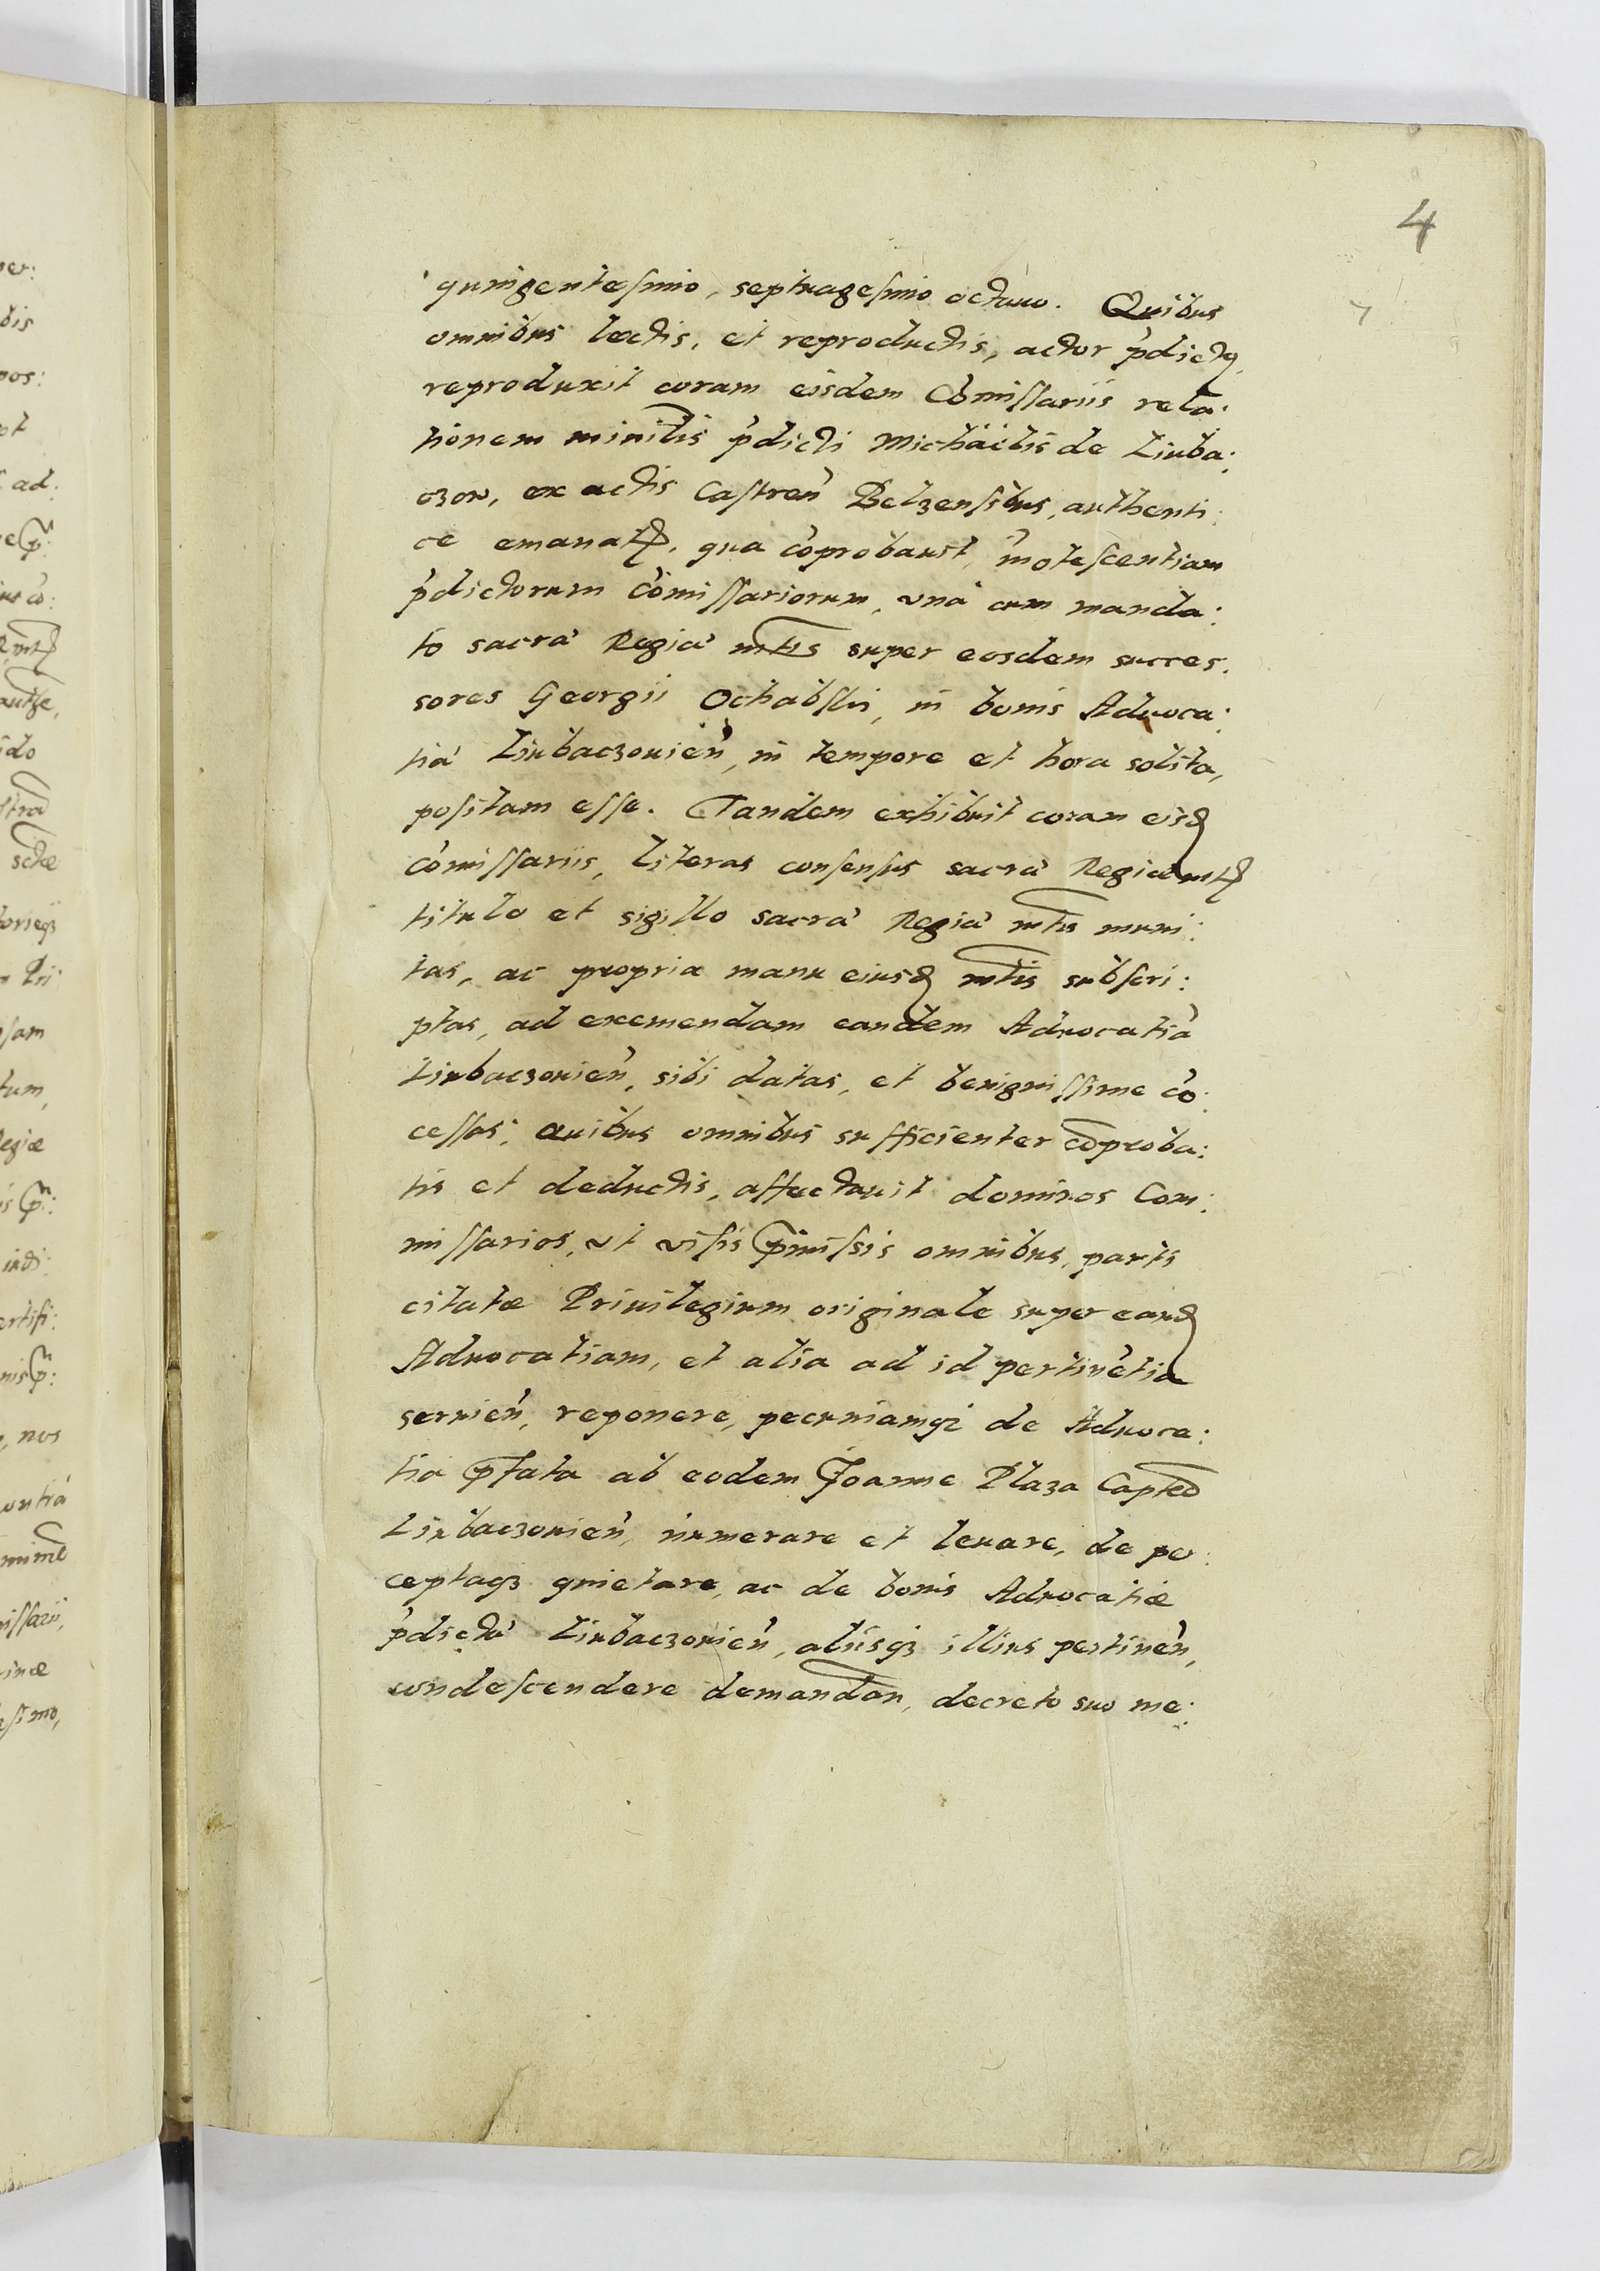 4
quingentesimo, septuagesimo octauo. Quibus
omnibus lectis, et reproductis, actor p̃dictꝰ,
reproduxit coram eisdem Com̃issariis rela:
tionem minir̃lis p̃dicti Michaelis de Liuba:
czow, ex actis Castren̄ Belzensibus, authenti:
ce emanatꝭ, qua cõprobauit, in̄otescentiam
p̃dictorum Com̃issariorum, vná cum manda:
to sacrá Regiá mtis super eosdem succes:
sores Georgii Ochabski, in bonis Aduoca:
tiá Liubaczouien̄, in tempore et hora solita,
positam esse. Tandem exhibuit coram eisd
Com̃issariis, Literas consensus sacrá Regiæ mtꝭ
titulo et sigillo sacrá Regiá mtis muni:
tas, ac propria manu eiusd mtis subscri:
ptas, ad exemendam eandem Aduocatiã
Liubaczouien̄, sibi datas, et benignissime cõ:
cessas: Quibus omnibus sufficienter cõproba:
tis et deductis, affectauit dominos Com:
missarios, vt visis p̃missis omnibus, partị
citatæ Priuilegium originale super eand
Aduocatiam, et alia ad id pertinẽtia
seruien̄, reponere, pecuniamqȝ de Aduoca:
tia p̃fata ab eodem Joanne Plaza Capteo
Liubaczouien̄, numerare et leuare, de per:
ceptaqȝ quietare, ac de bonis Aduocatiæ
p̃dictá Liubaczouien̄, aliisqȝ illius pertinen̄,
condescendere demandan̄, decreto suo me: